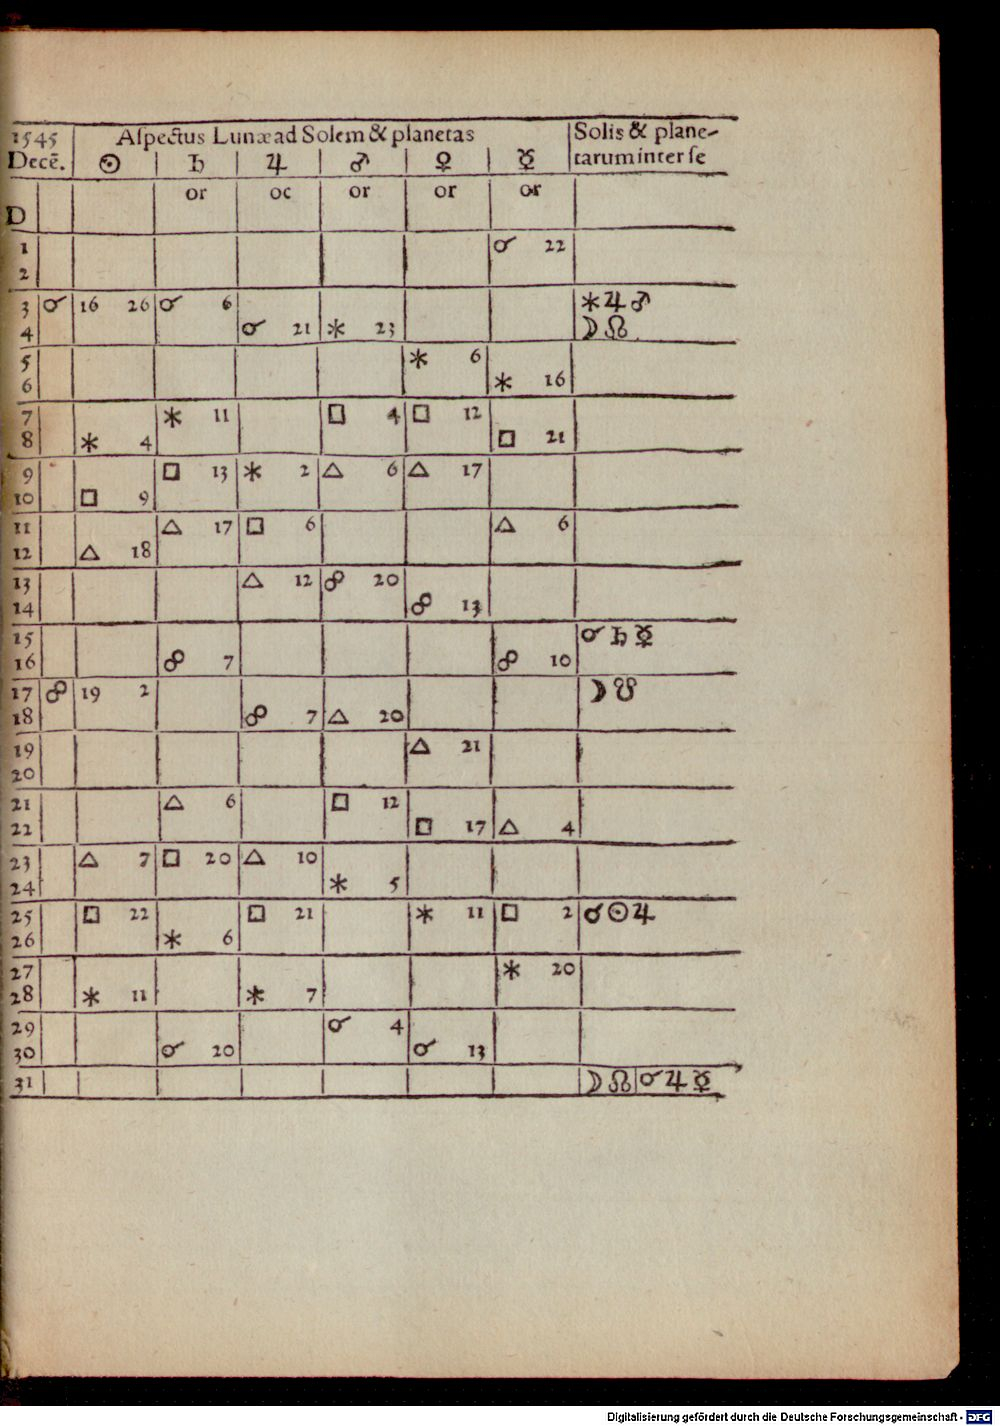 1545 Aſpectus Lunæ ad Solem & planetas Solis & plane-
Decē. ☉ ♄ ♃ ♂ ♀ ☿ tarum inter ſe
or oc or or or
D
1 ☌ 22
2
3 ☌ 16 26 ☌ 6 ⚹ ♃ ♂
4 ☌ 21 ⚹ 23 ☽ ☊
5 ⚹ 6
6 ⚹ 16
7 ⚹ 11 □ 4 □ 12
8 ⚹ 4 □ 21
9 □ 13 ⚹ 2 △ 6 △ 17
10 □ 9
11 △ 17 □ 6 △ 6
12 △ 18
13 △ 12 ☍ 20
14 ☍ 13
15 ☌ ♄ ☿
16 ☍ 7 ☍ 10
17 ☍ 19 2 ☽ ☋
18 ☍ 7 △ 20
19 △ 21
20
21 △ 6 □ 12
22 □ 17 △ 4
23 △ 7 □ 20 △ 10
24 ⚹ 5
25 □ 22 □ 21 ⚹ 11 □ 2 ☌ ☉ ♃
26 ⚹ 6
27 ⚹ 20
28 ⚹ 11 ⚹ 7
29 ☌ 4
30 ☌ 20 ☌ 13
31 ☽ ☊ ☌ ♃ ☿
Digitalisierung gefördert durch die Deutsche Forschungsgemeinschaft - DFG